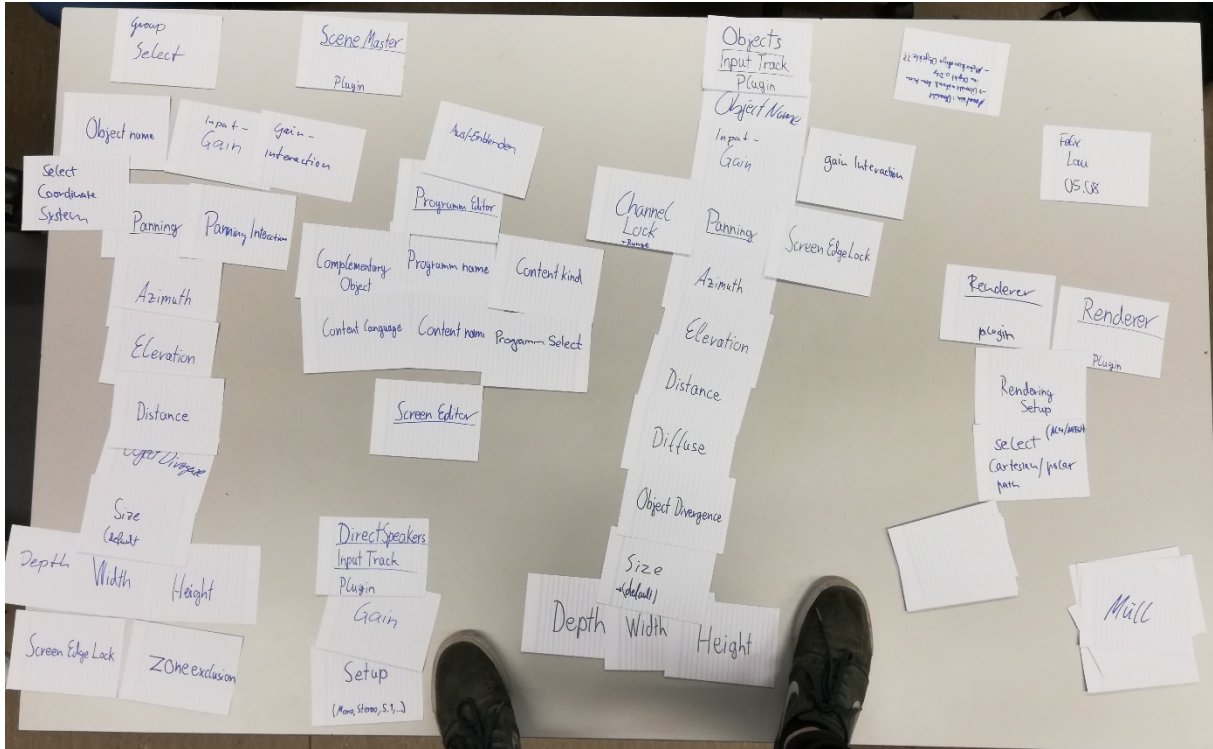 Group
Select
Scene Master
Plugin
Object name
Input-
Gain
Gain-
interaction
Select
Coordinate
System
Panning
Panning Interaction
Azimuth
Elevation
Distance
Object Divergence
Size
(default
Depth
Width
Height
Screen Edge Lock
Zone exclusion
Programm Editor
Complementary
Object
Programm name
Content kind
Content language
Content name
Programm Select
Screen Editor
DirectSpeakers
Input Track
Plugin
Gain
Setup
(Mono, Stereo, 5.1,...)
Objects
Input Track
Plugin
Object Name
Input-
Gain
gain Interaction
Channel
Lock
Panning
Screen EdgeLock
Azimuth
Elevation
Distance
Diffuse
Object Divergence
Size
(default)
Depth
Width
Height
Felix
Lau
05.08
Renderer
plugin
Renderer
Plugin
Rendering
Setup
select
Cartesian/polar
path
Müll